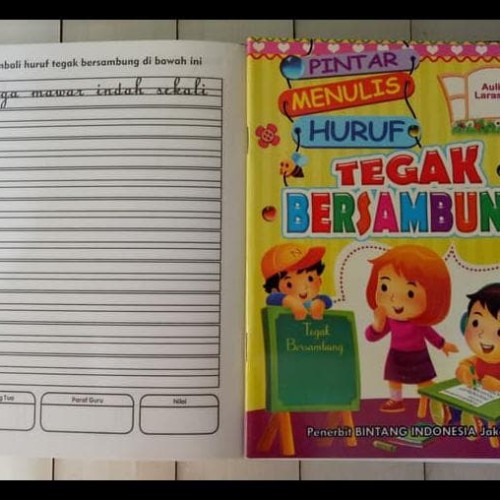 bali huruf tegak bersambung di bawah ini
ga mawar indah sekali
Tua
Paraf Guru
Nilai
PINTAR
MENULIS
HURUF
TEGAK
BERSAMBUN
Auli
Laras
N
Tegak
Bersambung
Penerbit BINTANG INDONESIA Jak